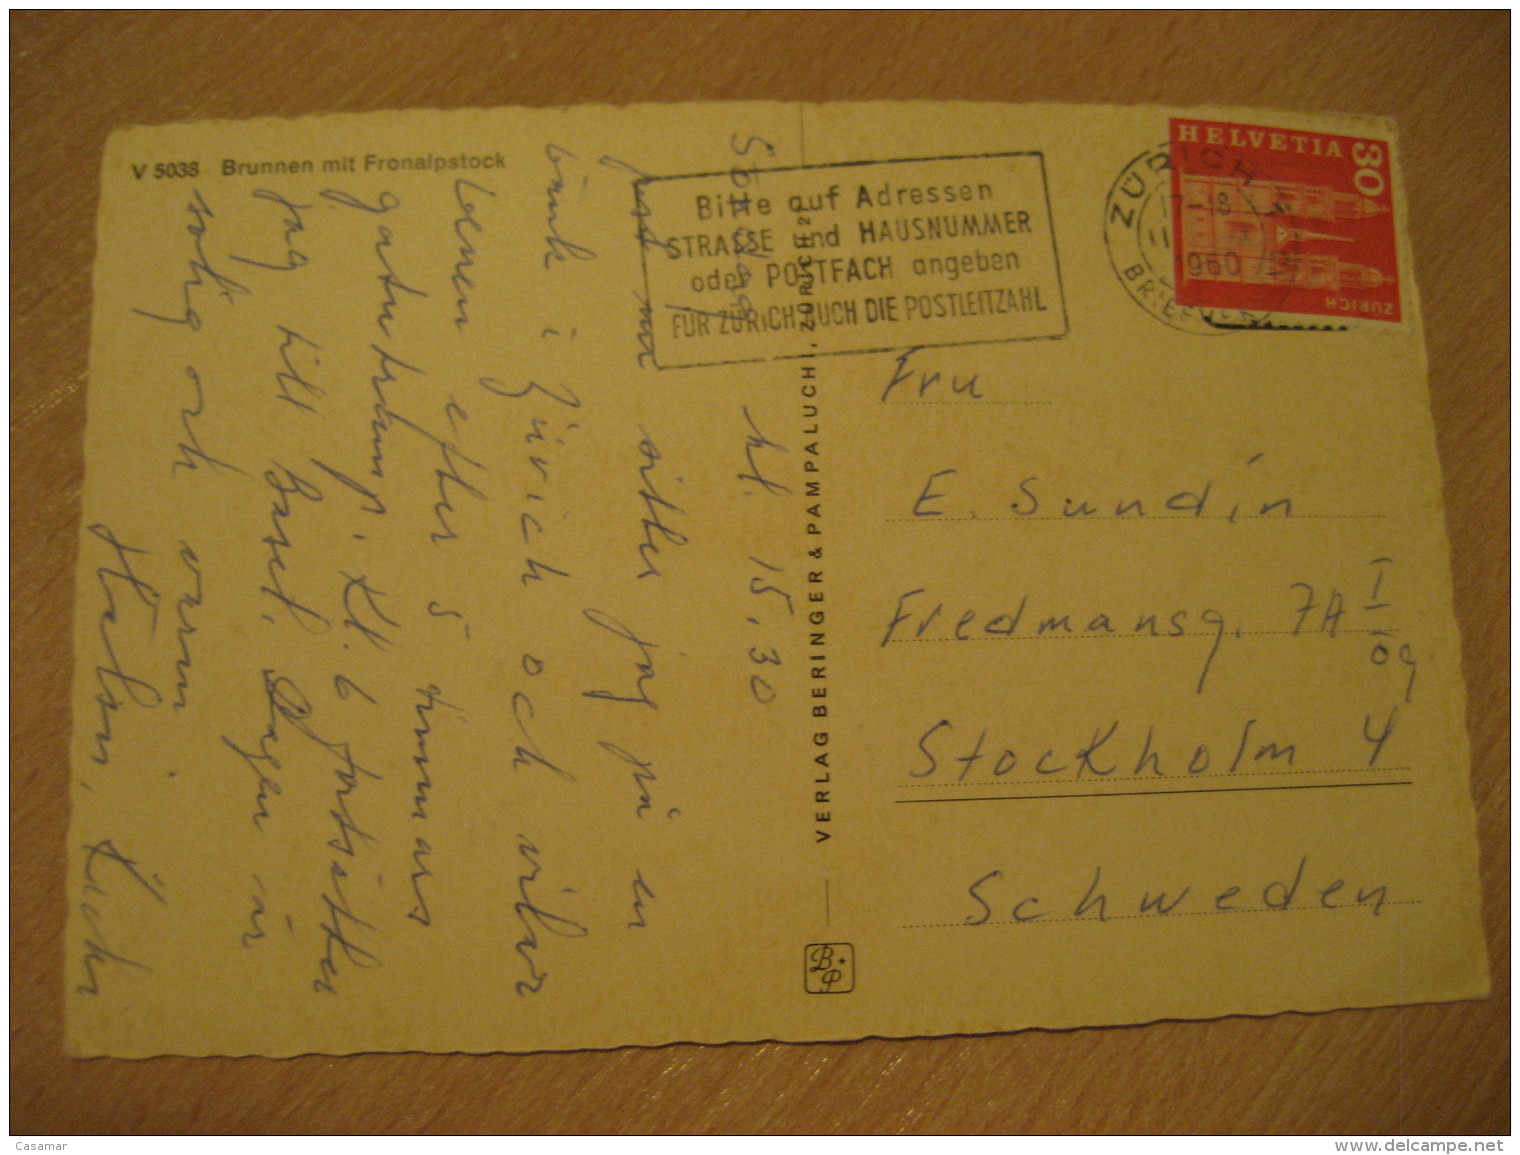 V 5038 Brunnen mit Fronalpstock
Söndag kl. 15.30
Just nu sitter jag på en
bänk i Zürich och vilar
benen efter 5 timmars
gatutramp. Kl. 6 fortsätter
jag till Basel. Dagen är
solig och varm.
Hälsn,
VERLAG BERINGER & PAMPALUCHI, ZÜRICH 2
B+P
Bitte auf Adressen
STRASSE und HAUSNUMMER
oder POSTFACH angeben
FÜR ZÜRICH AUCH DIE POSTLEITZAHL
ZÜRICH
17-18
11
1960
HELVETIA
30
ZÜRICH
Fru
E. Sundin
Fredmansg. 7A I
ög
Stockholm 4
Schweden
Casamar
www.delcampe.net